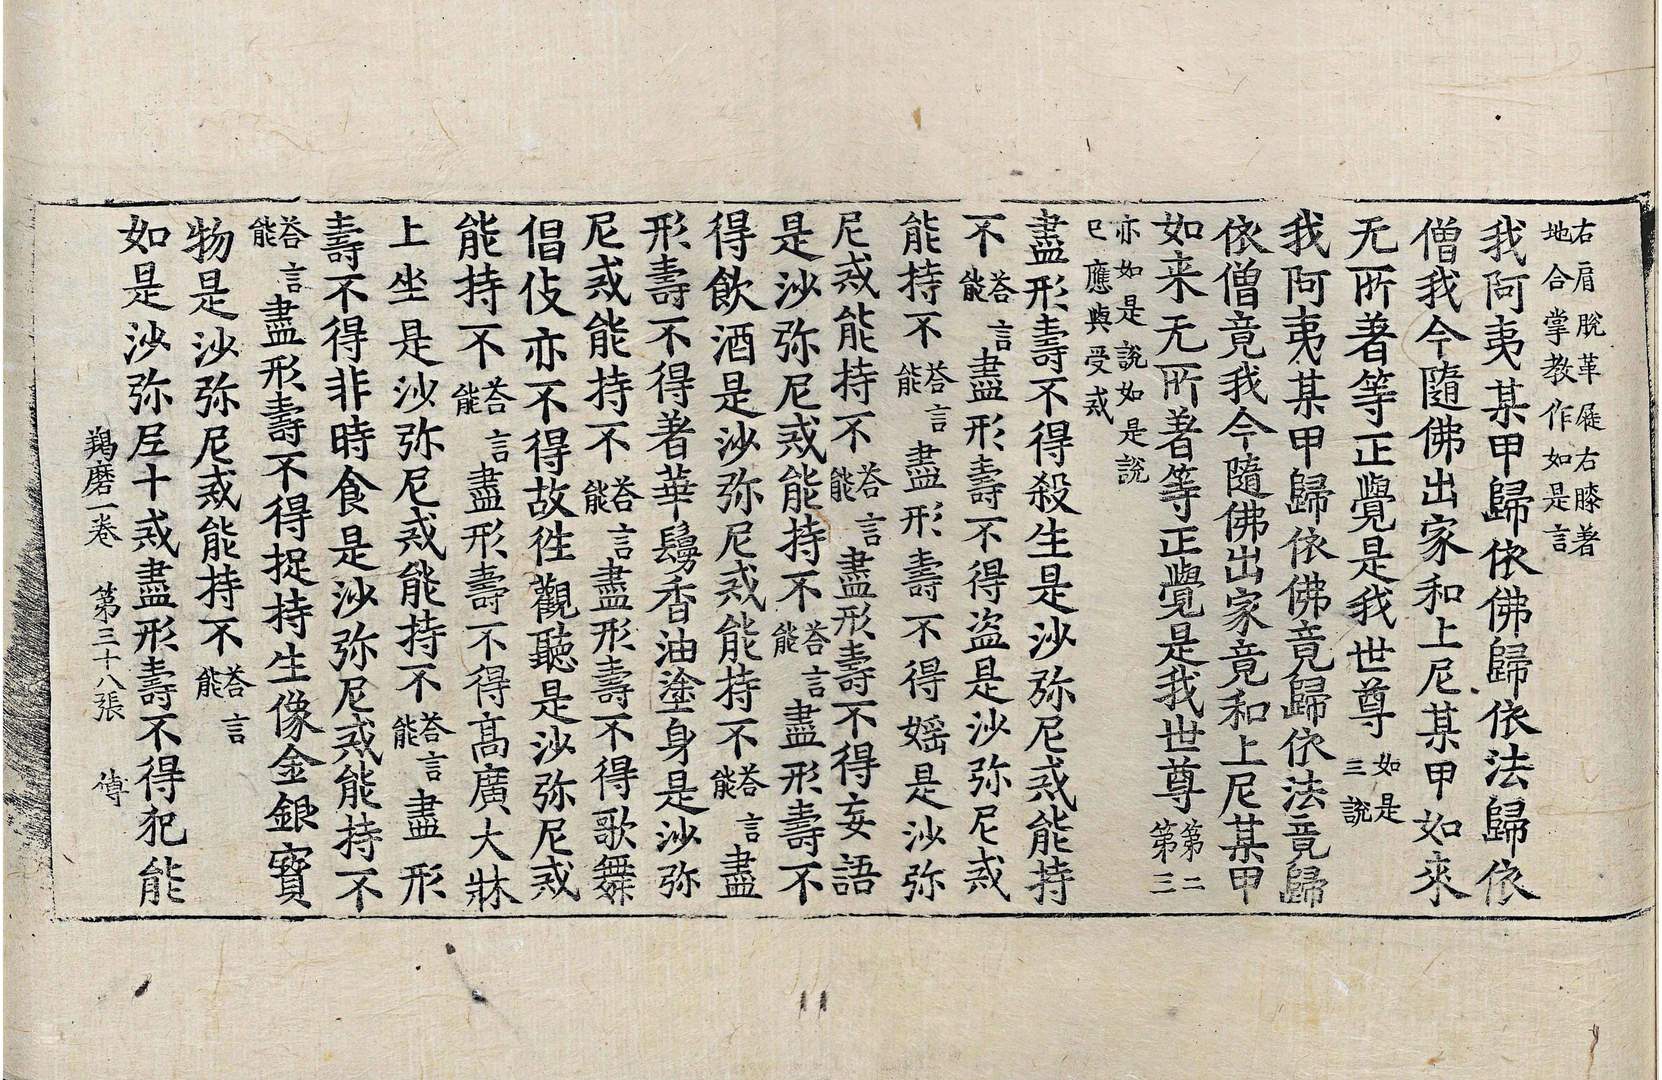 右肩脫革屣右膝著
地合掌教作如是言
我阿夷某甲歸依佛歸依法歸依
僧我今隨佛出家和上尼某甲如來
无所著等正覺是我世尊如是
三說
我阿夷某甲歸依佛竟歸依法竟歸
依僧竟我今隨佛出家竟和上尼某甲
如来无所著等正覺是我世尊第二
第三
亦如是說如是說
已應與受戒
盡形壽不得殺生是沙弥尼戒能持
不答言
能盡形壽不得盗是沙弥尼戒
能持不答言
能盡形壽不得婬是沙弥
尼戒能持不答言
能盡形壽不得妄語
是沙弥尼戒能持不答言
能盡形壽不
得飲酒是沙弥尼戒能持不答言
能盡
形壽不得著華鬘香油塗身是沙弥
尼戒能持不答言
能盡形壽不得歌舞
倡伎亦不得故徃觀聽是沙弥尼戒
能持不答言
能盡形壽不得髙廣大牀
上坐是沙弥尼戒能持不答言
能盡形
壽不得非時食是沙弥尼戒能持不
答言
能盡形壽不得捉持生像金銀寶
物是沙弥尼戒能持不答言
能
如是沙弥尼十戒盡形壽不得犯能
羯磨一卷 第三十八張 傅